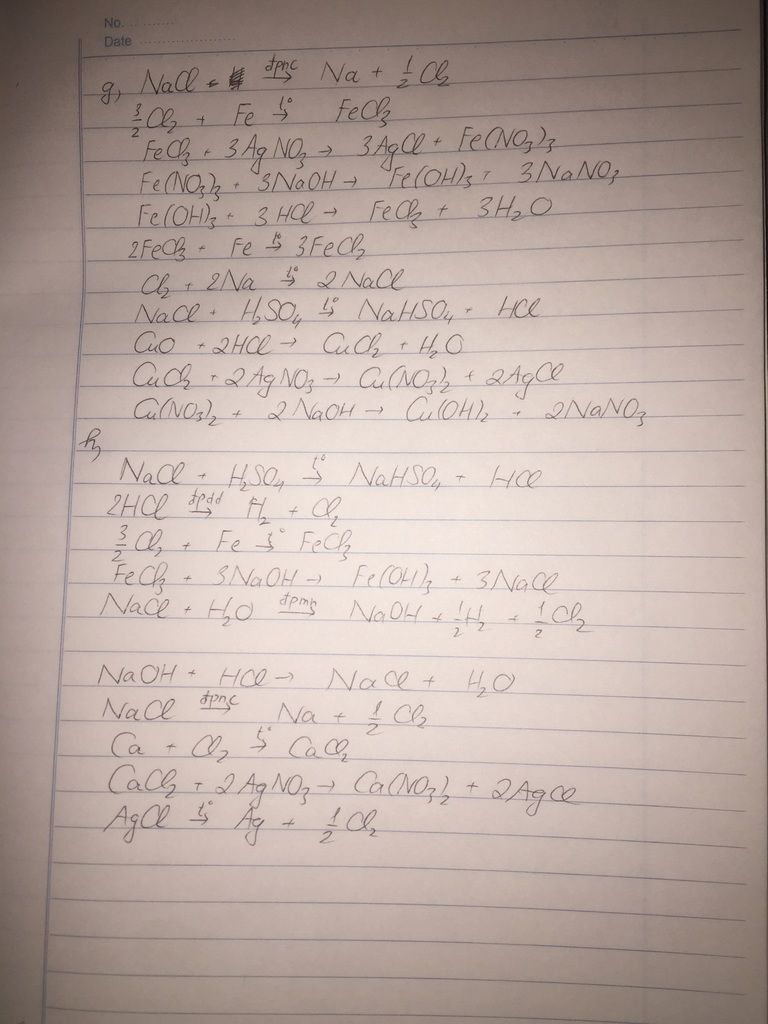 No. ............
Date ........................
g, NaCl đpnc→ Na + 1/2 Cl₂
3/2 Cl₂ + Fe t°→ FeCl₃
FeCl₃ + 3AgNO₃ → 3AgCl + Fe(NO₃)₃
Fe(NO₃)₃ + 3NaOH → Fe(OH)₃ + 3NaNO₃
Fe(OH)₃ + 3HCl → FeCl₃ + 3H₂O
2FeCl₃ + Fe t°→ 3FeCl₂
Cl₂ + 2Na t°→ 2NaCl
NaCl + H₂SO₄ t°→ NaHSO₄ + HCl
CuO + 2HCl → CuCl₂ + H₂O
CuCl₂ + 2AgNO₃ → Cu(NO₃)₂ + 2AgCl
Cu(NO₃)₂ + 2NaOH → Cu(OH)₂ + 2NaNO₃
h,
NaCl + H₂SO₄ t°→ NaHSO₄ + HCl
2HCl đpdd→ H₂ + Cl₂
3/2 Cl₂ + Fe t°→ FeCl₃
FeCl₃ + 3NaOH → Fe(OH)₃ + 3NaCl
NaCl + H₂O đpmn→ NaOH + 1/2 H₂ + 1/2 Cl₂
NaOH + HCl → NaCl + H₂O
NaCl đpnc→ Na + 1/2 Cl₂
Ca + Cl₂ t°→ CaCl₂
CaCl₂ + 2AgNO₃ → Ca(NO₃)₂ + 2AgCl
AgCl t°→ Ag + 1/2 Cl₂